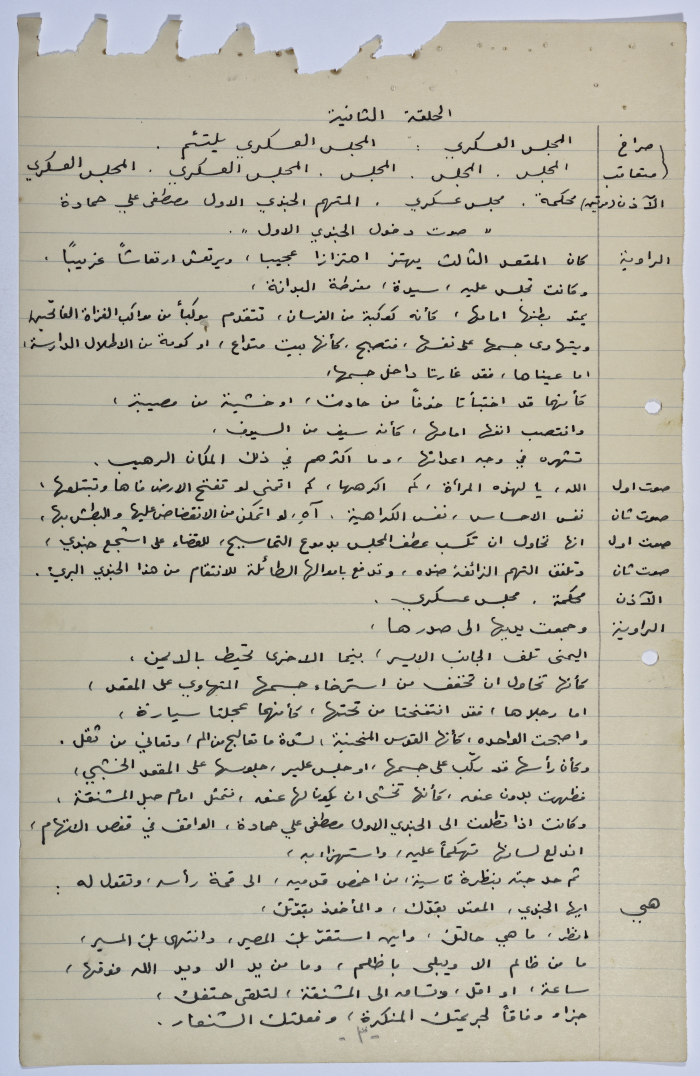 الحلقة الثانية
صراخ المجلس العسكري : المجلس العسكري يلتئم .
متعاقب المجلس . المجلس . المجلس . المجلس العسكري . المجلس العسكري
الآذن (مرتين) محكمة . مجلس عسكري . المتهم الجندي الاول مصطفى علي حمادة
" صوت دخول الجندي الاول " .
الراوية كان المقعد الثالث يهتز اهتزازا عجيبا ، ويرتعش ارتعاشاً غريباً ،
وكانت تجلس عليه ، سيدة ، مفرطة البدانة ،
يمتد بطنها امامها ، كأنه كوكبة من الفرسان ، تتقدم موكباً من مواكب الغزاة الفاتحين
ويتهاوى جسمها على نفسها ، فتصبح ، كأنها بيت متداع ، او كومة من الاطلال الدارسة ،
اما عيناها ، فقد غارتا داخل جسمها ،
كأنهما قد اختبأتا خوفاً من حادث ، او خشية من مصيبة ،
وانتصب انفها امامها ، كأنه سيف من السيوف ،
تشهره في وجه اعدائها ، وما اكثرهم في ذلك المكان الرهيب .
صوت اول الله ، يا لهذه المرأة ، كم اكرهها ، كم اتمنى لو تفتح الارض فاها وتبتلعها ،
صوت ثان نفس الاحساس ، نفس الكراهية . آهِ ، لو اتمكن من الانقضاض عليها والبطش بها ،
صوت اول انها تحاول ان تكسب عطف المجلس بدموع التماسيح ، للقضاء على اشجع جندي ،
صوت ثان وتلفق التهم الزائفة ضده ، وتدفع باموالها الطائلة للانتقام من هذا الجندي البريء .
الآذن محكمة . مجلس عسكري .
الراوية وجمعت يديها الى صدرها ،
اليمنى تلف الجانب الايسر ، بينما الاخرى تحيط بالايمن ،
كأنها تحاول ان تخفف من استرخاء جسمها المتهاوي على المقعد ،
اما رجلاها ، فقد انتفختا من تحتها ، كأنهما عجلتا سيارة ،
واصبحت الواحده ، كأنها القوس المنحنية ، لشدة ما تعالج من الم ، وتعاني من ثقل .
وكأن رأسها قد ركّب على جسمها ، او جلس عليه ، جلوسها على المقعد الخشبي ،
فظهرت بدون عنق ، كأنها تخشى ان يكون لها عنق ، فتمثل امام حبل المشنقة ،
وكانت اذا تطلعت الى الجندي الاول مصطفى علي حمادة ، الواقف في قفص الاتهام ،
اندلع لسانها تهكماً عليه ، واستهزاء به ،
ثم حدجته بنظرة قاسية ، من اخمص قدميه ، الى قمة رأسه ، وتقول له :
هي ايها الجندي ، المعتد بقدّك ، والمأخوذ بقوّتك ،
انظر ، ما هي حالتك ، واين استقرّ بك المصير ، وانتهى بك المسير ،
ما من ظالم الا ويبلى باظلم ، وما من يد الا ويد الله فوقها ،
ساعة ، او اقل ، وتساق الى المشنقة ، لتلقى حتفك ،
جزاء وفاقاً لجريمتك المنكرة ، وفعلتك الشنعاء .
- ٣ -